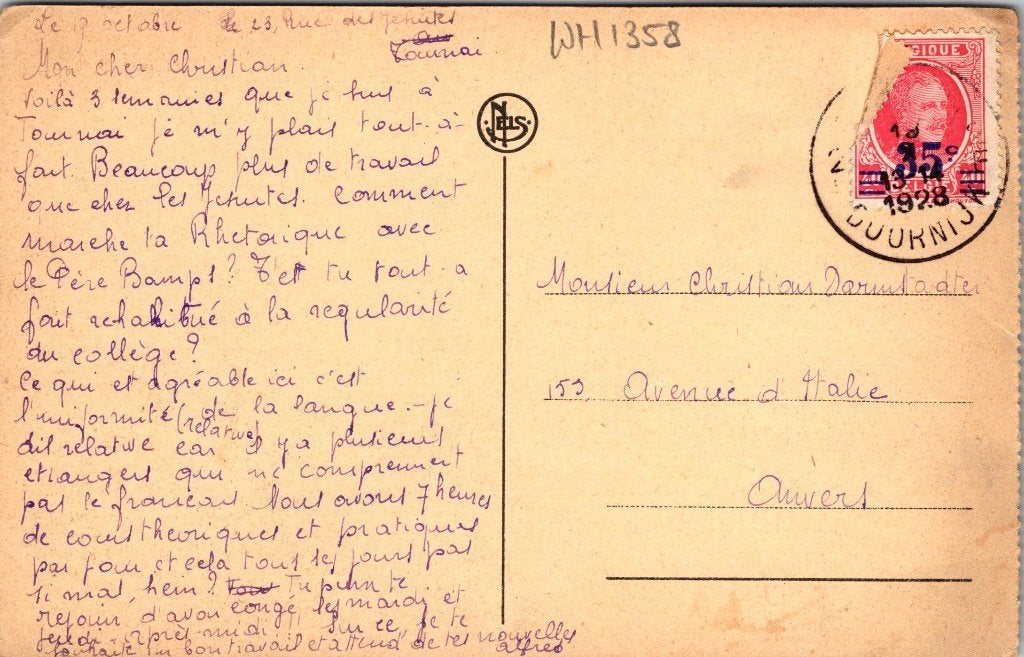 Le 19 octobre 23, Rue des Jesuites
Tournai
Mon cher Christian.
Voilà 3 semaines que je suis à
Tournai je m'y plais tout-à-
fait. Beaucoup plus de travail
que chez les Jesuites. Comment
marche ta Rhetorique avec
le Père Bamps? T'es tu tout-a
fait rehabitué à la regularité
du collège?
Ce qui est agréable ici c'est
l'uniformité (relative) de la langue.-je
dis relative car il y a plusieurs
etrangers qui ne comprennent
pas le francais Nous avons 7 heures
de cours theoriques et pratiques
par jour et cela tous les jours pas
si mal, hein? Tu peux te
rejouir d'avoir congé les mardi et
jeudi après-midi!! Sur ce, je te
souhaite un bon travail et attend de tes nouvelles
Alfred
WH1358
NELS
GIQUE
35c
19
13-14
1928
DOORNIJK
Monsieur Christian Darmstadter
153, Avenue d'Italie
Anvers